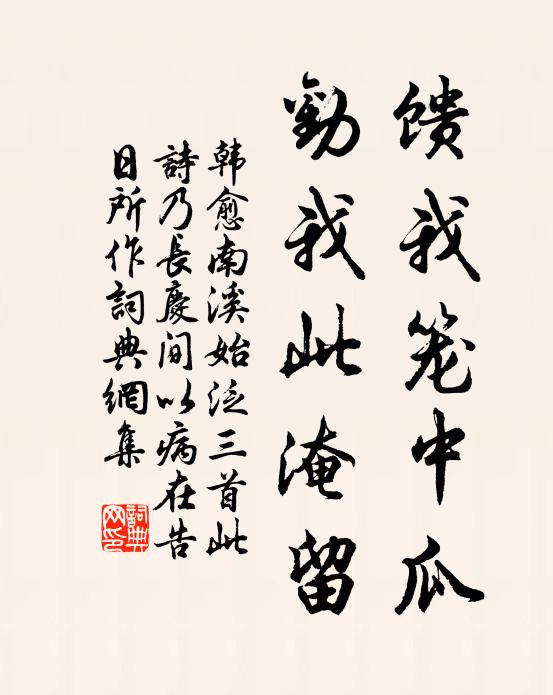 馈我笼中瓜
勸我此淹留
韩愈南溪始泛三首此
詩乃長慶间以病在告
日所作詞典網集
詞典网印